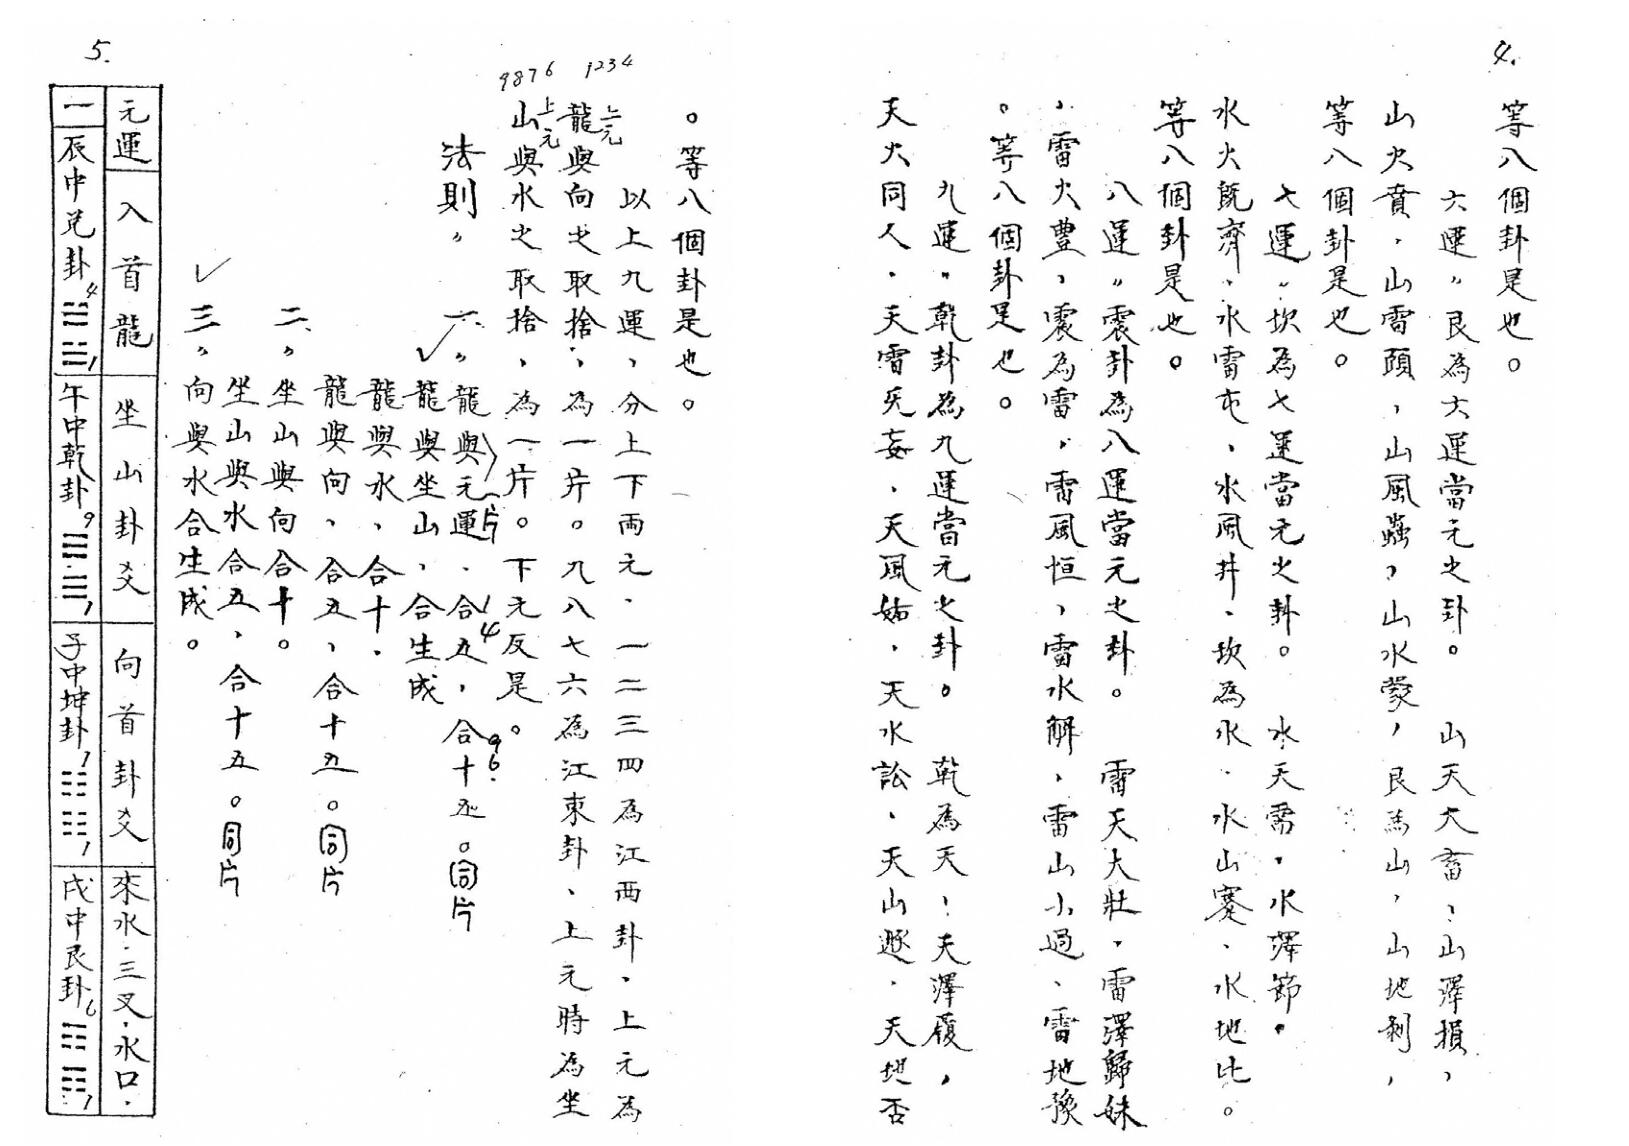 4.
等八個卦是也。
六運〃艮為六運當元之卦。 山天大畜、山澤損、
山火賁、山雷頤、山風蠱、山水蒙、艮為山、山地剝、
等八個卦是也。
七運〃坎為七運當元之卦。 水天需、水澤節、
水火既濟、水雷屯、水風井、坎為水、水山蹇、水地比。
等八個卦是也。
八運〃震卦為八運當元之卦。 雷天大壯、雷澤歸妹
、雷火豊、震為雷、雷風恒、雷水解、雷山小過、雷地豫
。等八個卦是也。
九運〃乾卦為九運當元之卦。 乾為天、天澤履、
天火同人、天雷旡妄、天風姤、天水訟、天山遯、天地否
5.
。等八個卦是也。
以上九運，分上下兩元、一二三四為江西卦、上元為
1234
上元
龍與向之取捨、為一片。九八七六為江東卦、上元時為坐
9876
上元
山與水之取捨、為一片。下元反是。
法則〃
一、〃龍與元運、合五，合十五。同片
1片
14
96.
龍與坐山、合生成
龍與水、合十、
龍與向、合五、合十五。同片
二、〃坐山與向合十。
坐山與水合五、合十五。同片
三、〃向與水合生成。
元運 入首龍 坐山卦爻 向首卦爻 來水、三叉、水口、
一 辰中兑卦4 ䷒1 午中乾卦9 1 子中坤卦1 ䷁1 戌中艮卦6 1